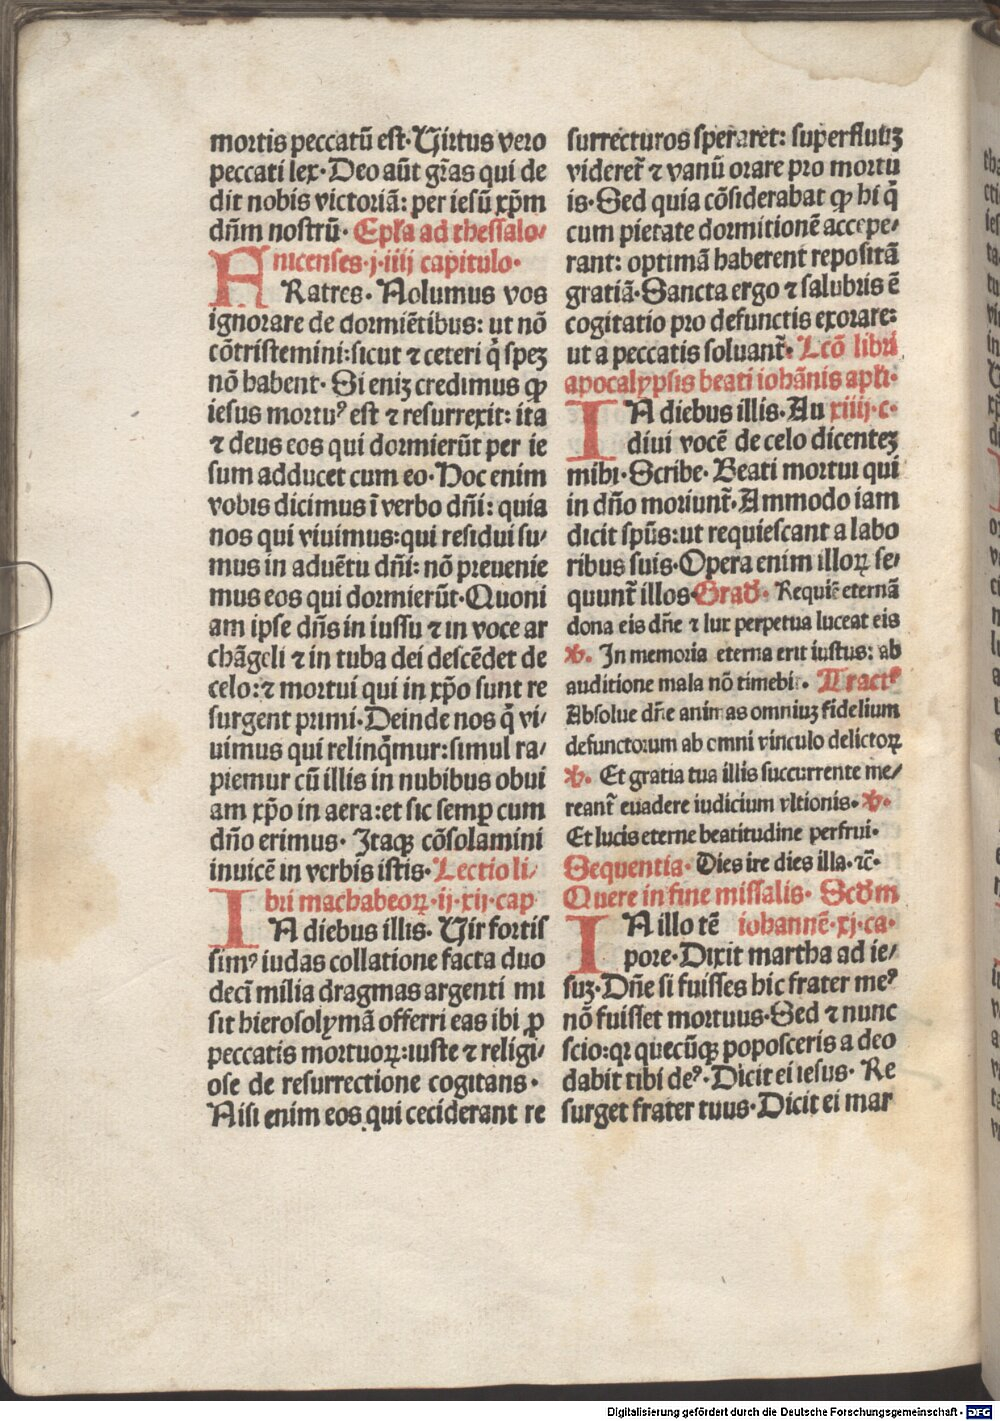 mortis peccatū est· Virtus vero
peccati lex· Deo aūt gr̄as qui de
dit nobis victoriā: per iesū xp̄m
dn̄m nostrū· Epl̄a ad thessalo⸗
nicenses ·j·iiij capitulo·
FRatres· Nolumus vos
ignorare de dormiētibus: ut nō
cōtristemini: sicut ⁊ ceteri q̄ speꝫ
nō habent· Si eniꝫ credimus ꝙ
iesus mortuꝰ est ⁊ resurrexit: ita
⁊ deus eos qui dormierūt per ie
sum adducet cum eo· Hoc enim
vobis dicimus ī verbo dn̄i: quia
nos qui viuimus: qui residui su⸗
mus in aduētu dn̄i: nō preuenie
mus eos qui dormierūt· Quoni
am ipse dn̄s in iussu ⁊ in voce ar
chāgeli ⁊ in tuba dei descēdet de
celo: ⁊ mortui qui in xp̄o sunt re
surgent primi· Deinde nos q̄ vi⸗
uimus qui relinq̄mur: simul ra⸗
piemur cū illis in nubibus obui
am xp̄o in aera: et sic semꝑ cum
dn̄o erimus· Itaqꝫ cōsolamini
inuicē in verbis istis· Lectio li⸗
bri machabeoꝝ ·ij·xij·cap
IN diebus illis· Vir fortis
simꝰ iudas collatione facta duo
decī milia dragmas argenti mi
sit hierosolymā offerri eas ibi ꝓ
peccatis mortuoꝝ: iuste ⁊ religi⸗
ose de resurrectione cogitans·
Nisi enim eos qui ceciderant re
surrecturos speraret: superfluuꝫ
videret̄ ⁊ vanū orare pro mortu
is· Sed quia cōsiderabat ꝙ hi q̄
cum pietate dormitionē accepe⸗
rant: optimā haberent repositā
gratiā· Sancta ergo ⁊ salubris ē
cogitatio pro defunctis exorare:
ut a peccatis soluant̄· Lcō libri
apocalypsis beati iohānis apl̄i·
IN diebus illis· Au xiiij·c·
diui vocē de celo dicenteꝫ
mihi· Scribe· Beati mortui qui
in dn̄o moriunt̄· Ammodo iam
dicit sp̄us: ut requiescant a labo
ribus suis· Opera enim illoꝝ se⸗
quunt̄ illos· Grad̄· Requiē eternā
dona eis dn̄e ⁊ lux perpetua luceat eis
℣. In memoria eterna erit iustus: ab
auditione mala nō timebit· Tractꝰ
Absolue dn̄e animas omniuꝫ fidelium
defunctorum ab omni vinculo delictoꝝ
℣. Et gratia tua illis succurrente me⸗
reant̄ euadere iudicium vltionis· ℣·
Et lucis eterne beatitudine perfrui·
Sequentia· Dies ire dies illa· ⁊c̄·
Quere in fine missalis· Scd̄m
IN illo tē iohannē·xj·ca·
pore· Dixit martha ad ie⸗
suꝫ· Dn̄e si fuisses hic frater meꝰ
nō fuisset mortuus· Sed ⁊ nunc
scio: qꝛ quecūqꝫ poposceris a deo
dabit tibi deꝰ· Dicit ei iesus· Re
surget frater tuus· Dicit ei mar
Digitalisierung gefördert durch die Deutsche Forschungsgemeinschaft - DFG